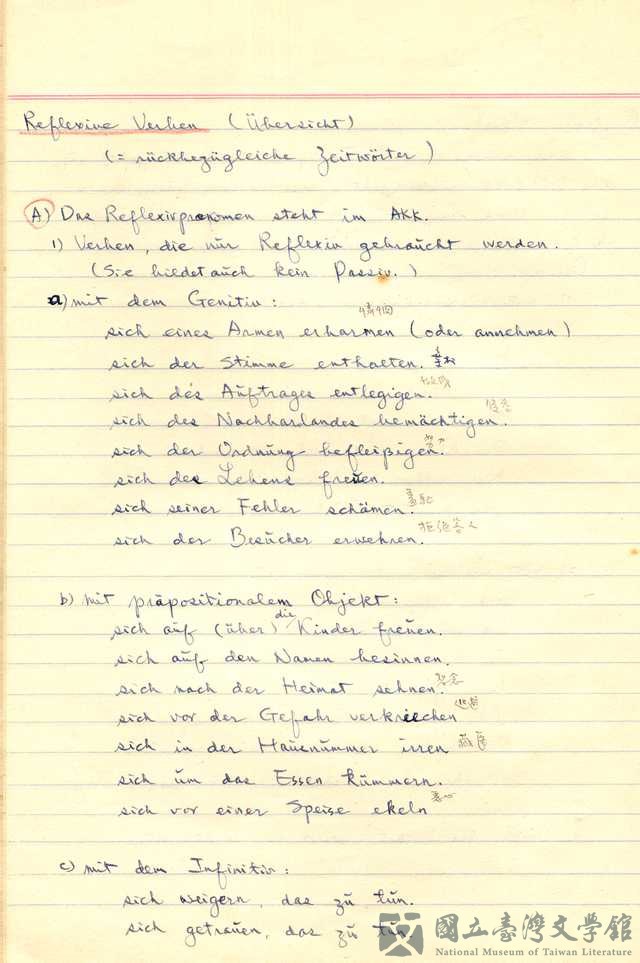 Reflexive Verben (Übersicht)
(= rückbezügleiche Zeitwörter)
A) Das Reflexivpronomen steht im AKK.
1) Verben, die nur Reflexiv gebraucht werden.
(Sie bildet auch kein Passiv.)
a) mit dem Genitiv:
sich eines Armen erbarmen (oder annehmen)
sich der Stimme enthalten.
sich des Auftrages entlegigen.
sich des Nachbarlandes bemächtigen.
sich der Ordnung befleißigen.
sich des Lebens freuen.
sich seiner Fehler schämen.
sich der Besucher erwehren. 拒絕客人
b) mit präpositionalem Objekt:
sich auf (über) die Kinder freuen.
sich auf den Namen besinnen.
sich nach der Heimat sehnen.
sich vor der Gefahr verkriechen
sich in der Hausnummer irren
sich um das Essen kümmern.
sich vor einer Speise ekeln
c) mit dem Infinitiv:
sich weigern, das zu tun.
sich getrauen, das zu tun.
國立臺灣文學館
National Museum of Taiwan Literature